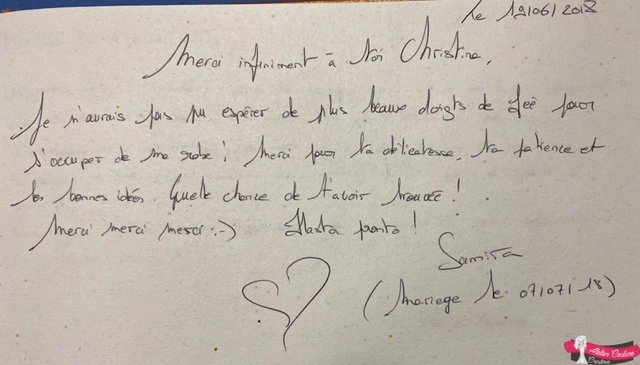 le 19/06/2018
Merci infiniment à toi Christine,
Je n'aurais pas pu espérer de plus beaux doigts de fée pour
s'occuper de ma robe! Merci pour ta délicatesse, ta patience et
tes bonnes idées. Quelle chance de t'avoir trouvée!
Merci merci merci :-) Hasta pronto!
Samira
(Mariage le 07/07/18)
Atelier Couture